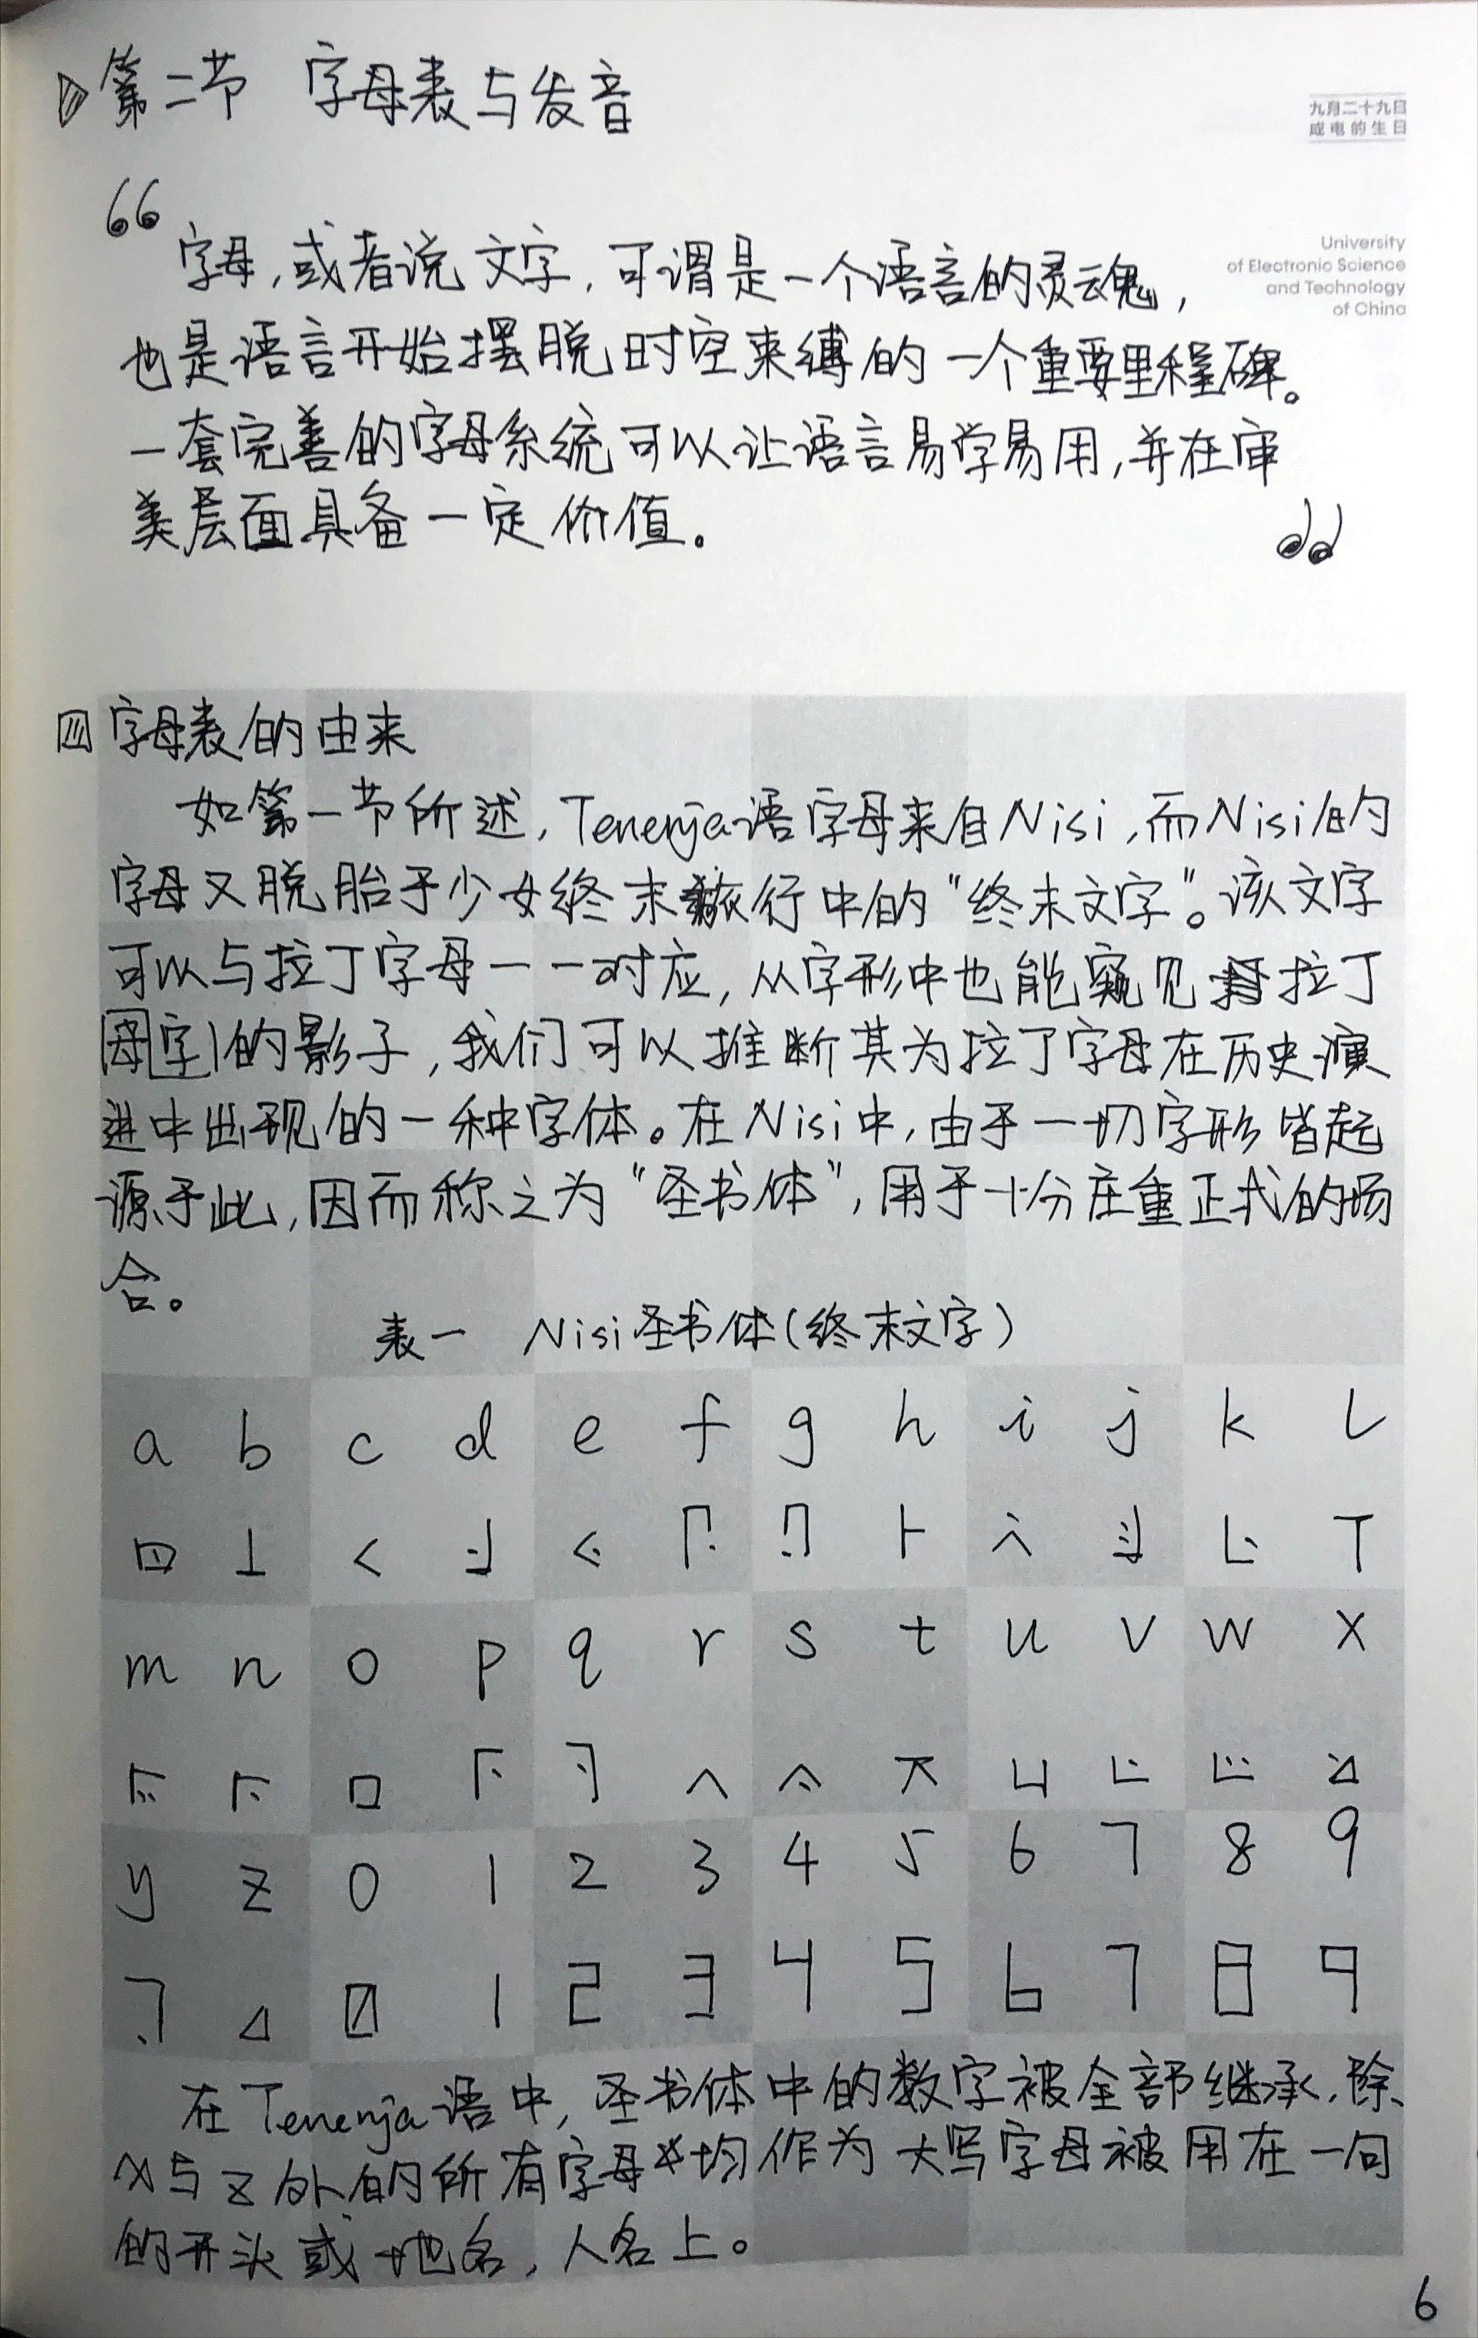 第二节 字母表与发音
九月二十九日
成电的生日
University
of Electronic Science
and Technology
of China
字母,或者说文字,可谓是一个语言的灵魂,
也是语言开始摆脱时空束缚的一个重要里程碑。
一套完善的字母系统可以让语言易学易用,并在审
美层面具备一定价值。
字母表的由来
如第一节所述,Tenenja语字母来自Nisi,而Nisi的
字母又脱胎于少女终末旅行中的“终末文字”。该文字
可以与拉丁字母一一对应,从字形中也能窥见拉丁
母字的影子,我们可以推断其为拉丁字母在历史演
进中出现的一种字体。在Nisi中,由于一切字形皆起
源于此,因而称之为“圣书体”,用于十分庄重正式的场
合。
表一 Nisi圣书体(终末文字)
a b c d e f g h i j k l
m n o p q r s t u v w x
y z 0 1 2 3 4 5 6 7 8 9
0 1 2 3 4 5 6 7 8 9
在Tenenja语中,圣书体中的数字被全部继承,除
x与z外的所有字母均作为大写字母被用在一句
的开头或地名,人名上。
6